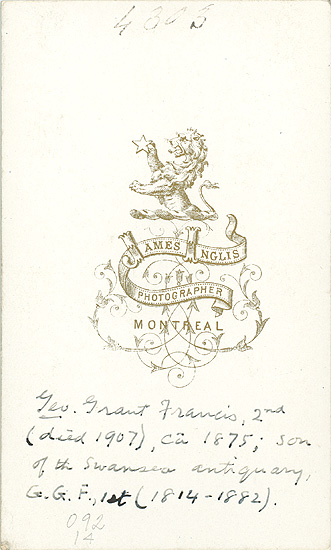 4303
JAMES INGLIS
PHOTOGRAPHER
MONTREAL
Geo. Grant Francis, 2nd
(died 1907), ca 1875; son
of the Swansea antiquary,
G.G.F., 1st (1814-1882).
092
14